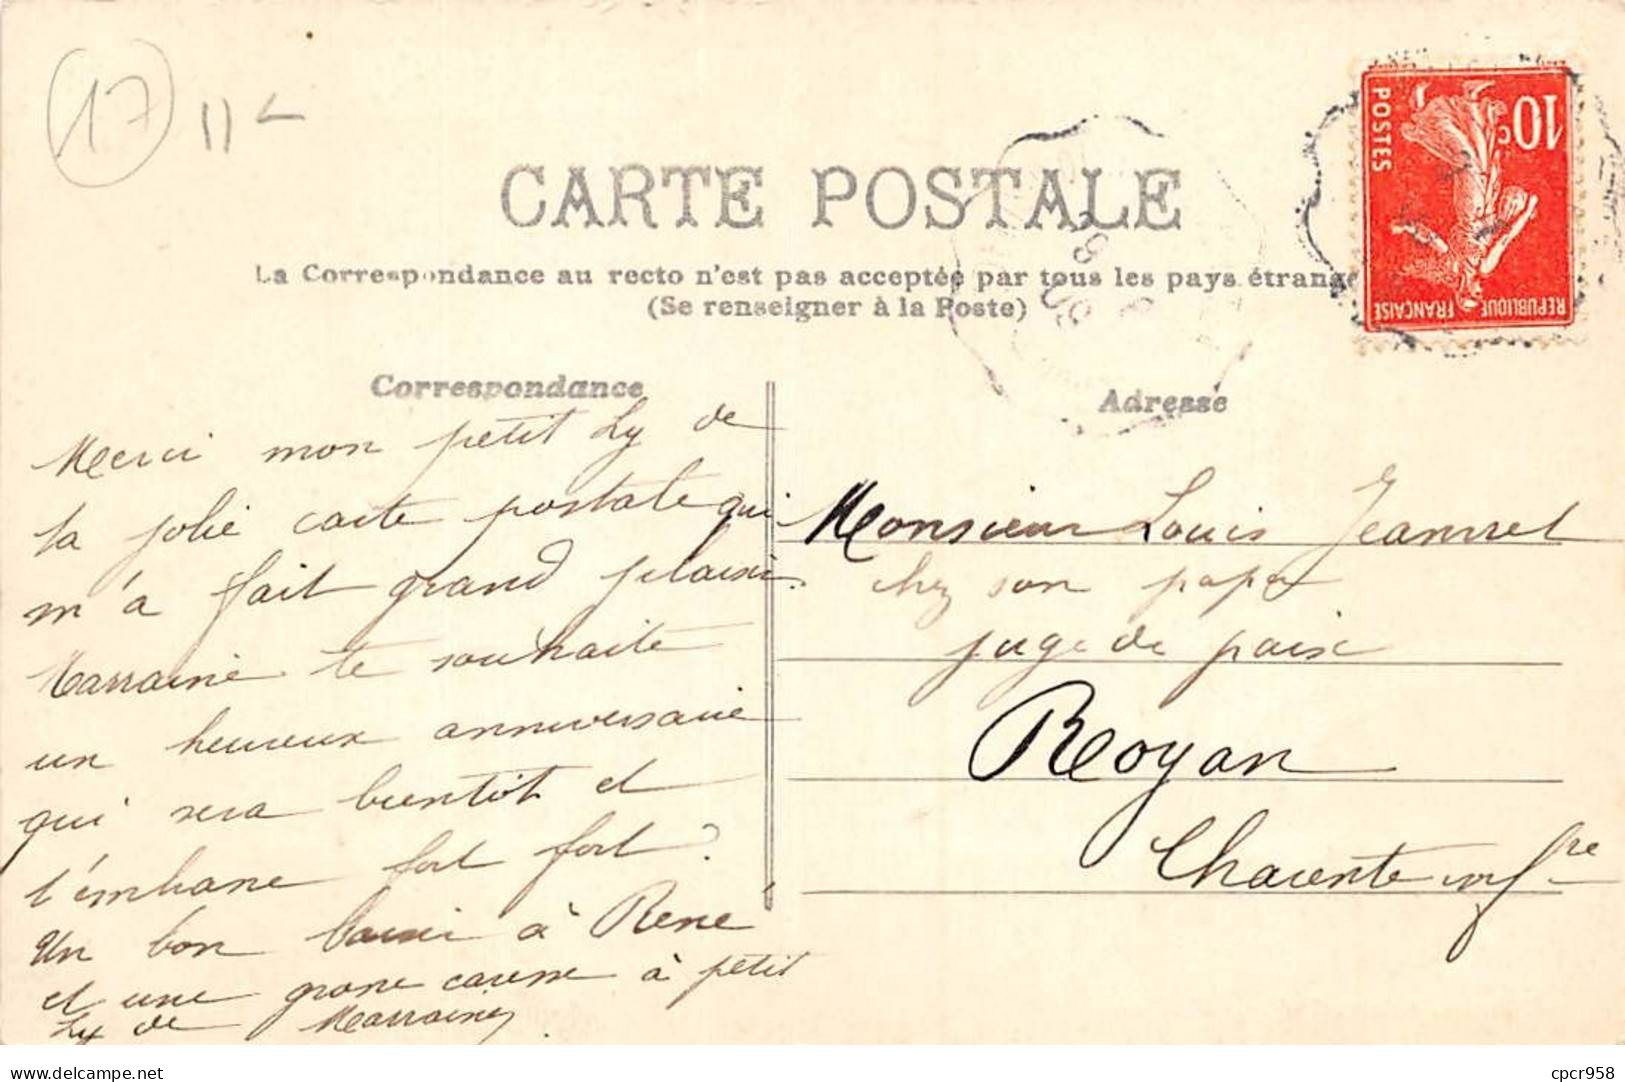 17
CARTE POSTALE
La Correspondance au recto n'est pas acceptée par tous les pays étrange
(Se renseigner à la Poste)
10c
POSTES
REPUBLIQUE FRANÇAISE
Correspondance
Merci mon petit Ly de
ta jolie carte postale qui
m'a fait grand plaisir.
Marraine te souhaite
un heureux anniversaire
qui sera bientôt et
t'embrasse fort fort.
Un bon baiser à Rene
et une grosse caresse à petit
Ly de Marraine
Adresse
Monsieur Louis Jeannet
chez son papa
juge de paix
Royan
Charente infre
delcampe.net
cpcr958